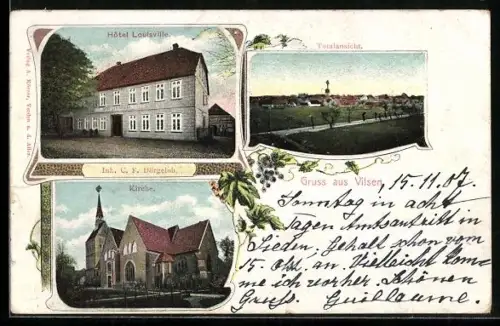 Hôtel Louisville.
Totalansicht.
Inh. C. F. Bürgeleh.
Kirche.
Gruss aus Vilsen,
15.11.07.
Sonntag in acht
Tagen Amtsantritt in
Sieden. Gehalt schon vom
15. Okt. an. Vielleicht kom-
me ich vorher. Schönen
Gruß. Guillaume.